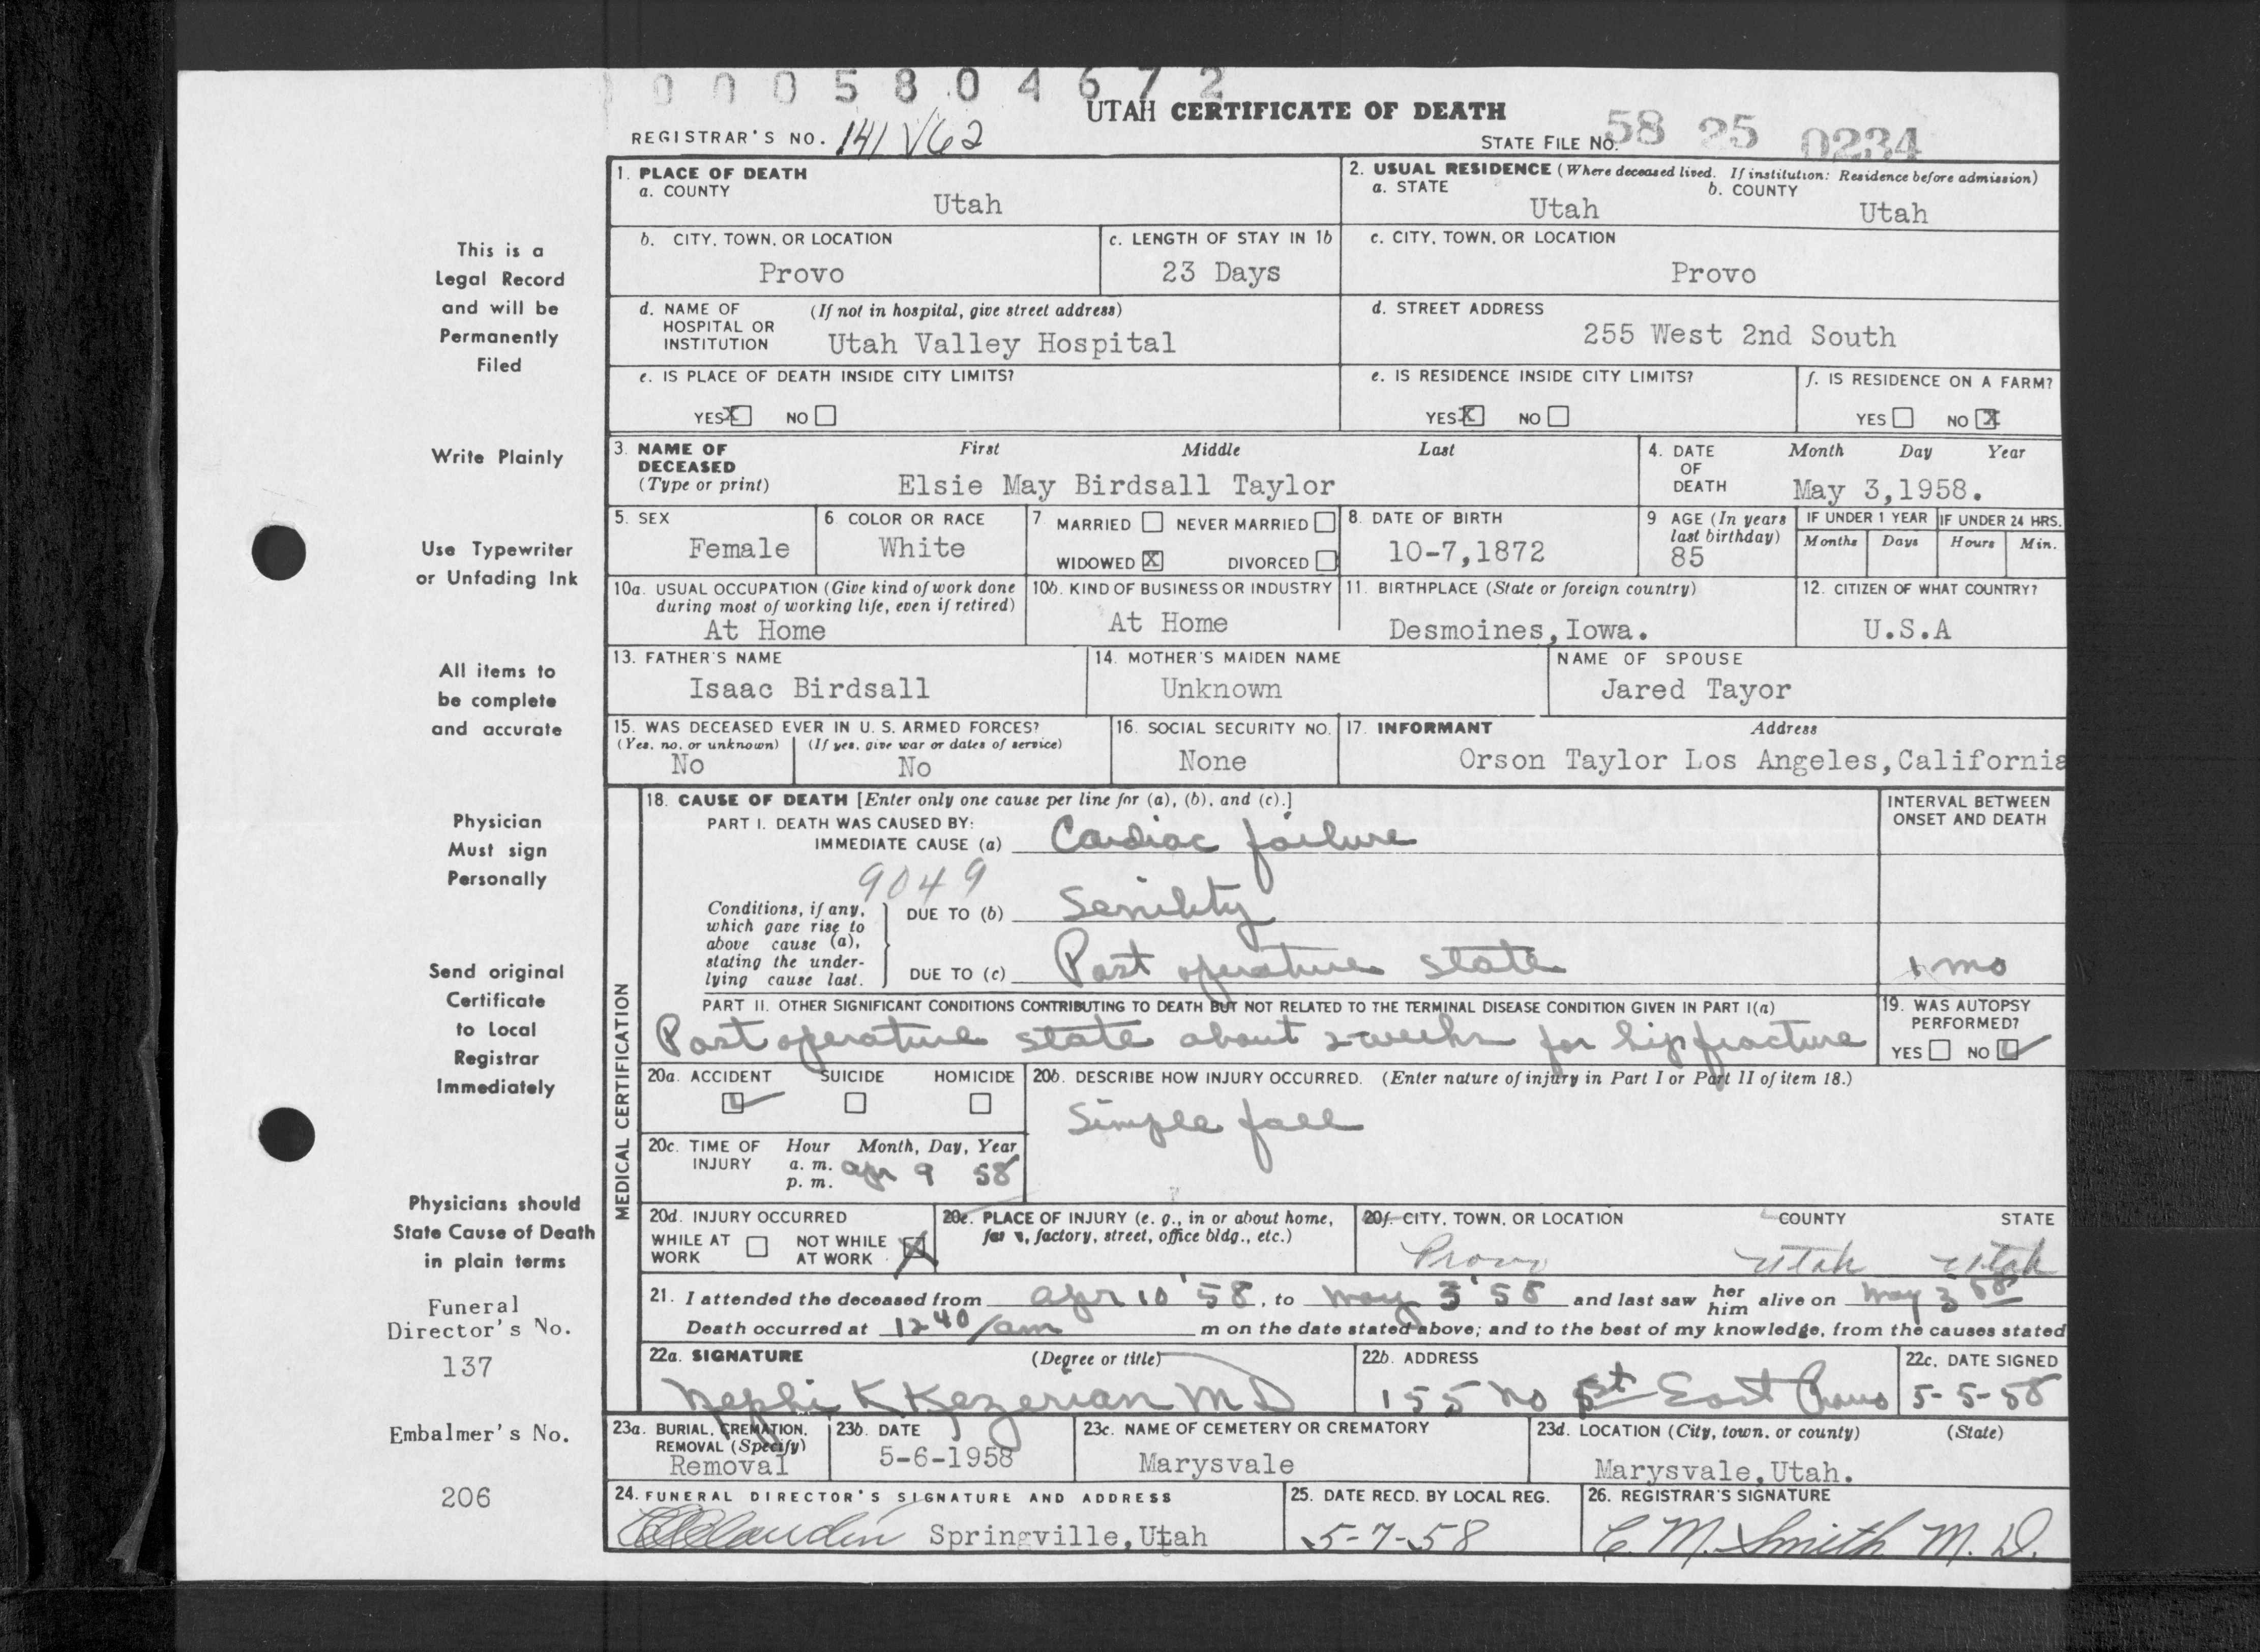 0 0 0 5 8 0 4 6 7 2
UTAH CERTIFICATE OF DEATH
REGISTRAR'S NO. 141 V62
STATE FILE NO. 58 25 0234
This is a
Legal Record
and will be
Permanently
Filed
Write Plainly
Use Typewriter
or Unfading Ink
All items to
be complete
and accurate
Physician
Must sign
Personally
Send original
Certificate
to Local
Registrar
Immediately
Physicians should
State Cause of Death
in plain terms
Funeral
Director's No.
137
Embalmer's No.
206
1. PLACE OF DEATH
a. COUNTY
Utah
2. USUAL RESIDENCE (Where deceased lived. If institution: Residence before admission)
a. STATE
Utah
b. COUNTY
Utah
b. CITY, TOWN, OR LOCATION
Provo
c. LENGTH OF STAY IN 1b
23 Days
c. CITY, TOWN, OR LOCATION
Provo
d. NAME OF (If not in hospital, give street address)
HOSPITAL OR
INSTITUTION Utah Valley Hospital
d. STREET ADDRESS
255 West 2nd South
e. IS PLACE OF DEATH INSIDE CITY LIMITS?
YES X NO
e. IS RESIDENCE INSIDE CITY LIMITS?
YES X NO
f. IS RESIDENCE ON A FARM?
YES NO X
3. NAME OF First Middle Last
DECEASED
(Type or print) Elsie May Birdsall Taylor
4. DATE Month Day Year
OF
DEATH May 3,1958.
5. SEX
Female
6. COLOR OR RACE
White
7 MARRIED NEVER MARRIED
WIDOWED X DIVORCED
8. DATE OF BIRTH
10-7,1872
9 AGE (In years
last birthday)
85
IF UNDER 1 YEAR
Months Days
IF UNDER 24 HRS.
Hours Min.
10a. USUAL OCCUPATION (Give kind of work done
during most of working life, even if retired)
At Home
10b. KIND OF BUSINESS OR INDUSTRY
At Home
11. BIRTHPLACE (State or foreign country)
Desmoines,Iowa.
12. CITIZEN OF WHAT COUNTRY?
U.S.A
13. FATHER'S NAME
Isaac Birdsall
14. MOTHER'S MAIDEN NAME
Unknown
NAME OF SPOUSE
Jared Tayor
15. WAS DECEASED EVER IN U. S. ARMED FORCES?
(Yes, no, or unknown) (If yes, give war or dates of service)
No No
16. SOCIAL SECURITY NO.
None
17. INFORMANT Address
Orson Taylor Los Angeles,California
MEDICAL CERTIFICATION
18. CAUSE OF DEATH [Enter only one cause per line for (a), (b), and (c).]
PART I. DEATH WAS CAUSED BY:
IMMEDIATE CAUSE (a) Cardiac failure
INTERVAL BETWEEN
ONSET AND DEATH
9049
Conditions, if any,
which gave rise to
above cause (a),
stating the under-
lying cause last.
DUE TO (b) Senility
DUE TO (c) Post operative state
1 mo
PART II. OTHER SIGNIFICANT CONDITIONS CONTRIBUTING TO DEATH BUT NOT RELATED TO THE TERMINAL DISEASE CONDITION GIVEN IN PART I(a)
Post operative state about 2 weeks for hip fracture
19. WAS AUTOPSY
PERFORMED?
YES NO
20a. ACCIDENT SUICIDE HOMICIDE
20b. DESCRIBE HOW INJURY OCCURRED. (Enter nature of injury in Part I or Part II of item 18.)
Simple fall
20c. TIME OF Hour Month, Day, Year
INJURY a. m. Apr 9 58
p. m.
20d. INJURY OCCURRED
WHILE AT NOT WHILE X
WORK AT WORK
20e. PLACE OF INJURY (e. g., in or about home,
farm, factory, street, office bldg., etc.)
20f. CITY, TOWN, OR LOCATION COUNTY STATE
Provo Utah Utah
21. I attended the deceased from Apr 10 '58, to May 3 '58 and last saw her him alive on May 3 58
Death occurred at 12 40/am m on the date stated above; and to the best of my knowledge, from the causes stated
22a. SIGNATURE (Degree or title)
Nephi K Kezerian M D
22b. ADDRESS
155 No 5st East Provo
22c. DATE SIGNED
5-5-58
23a. BURIAL, CREMATION,
REMOVAL (Specify)
Removal
23b. DATE
5-6-1958
23c. NAME OF CEMETERY OR CREMATORY
Marysvale
23d. LOCATION (City, town, or county) (State)
Marysvale,Utah.
24. FUNERAL DIRECTOR'S SIGNATURE AND ADDRESS
Springville,Utah
25. DATE RECD. BY LOCAL REG.
5-7-58
26. REGISTRAR'S SIGNATURE
C. M. Smith M. D.